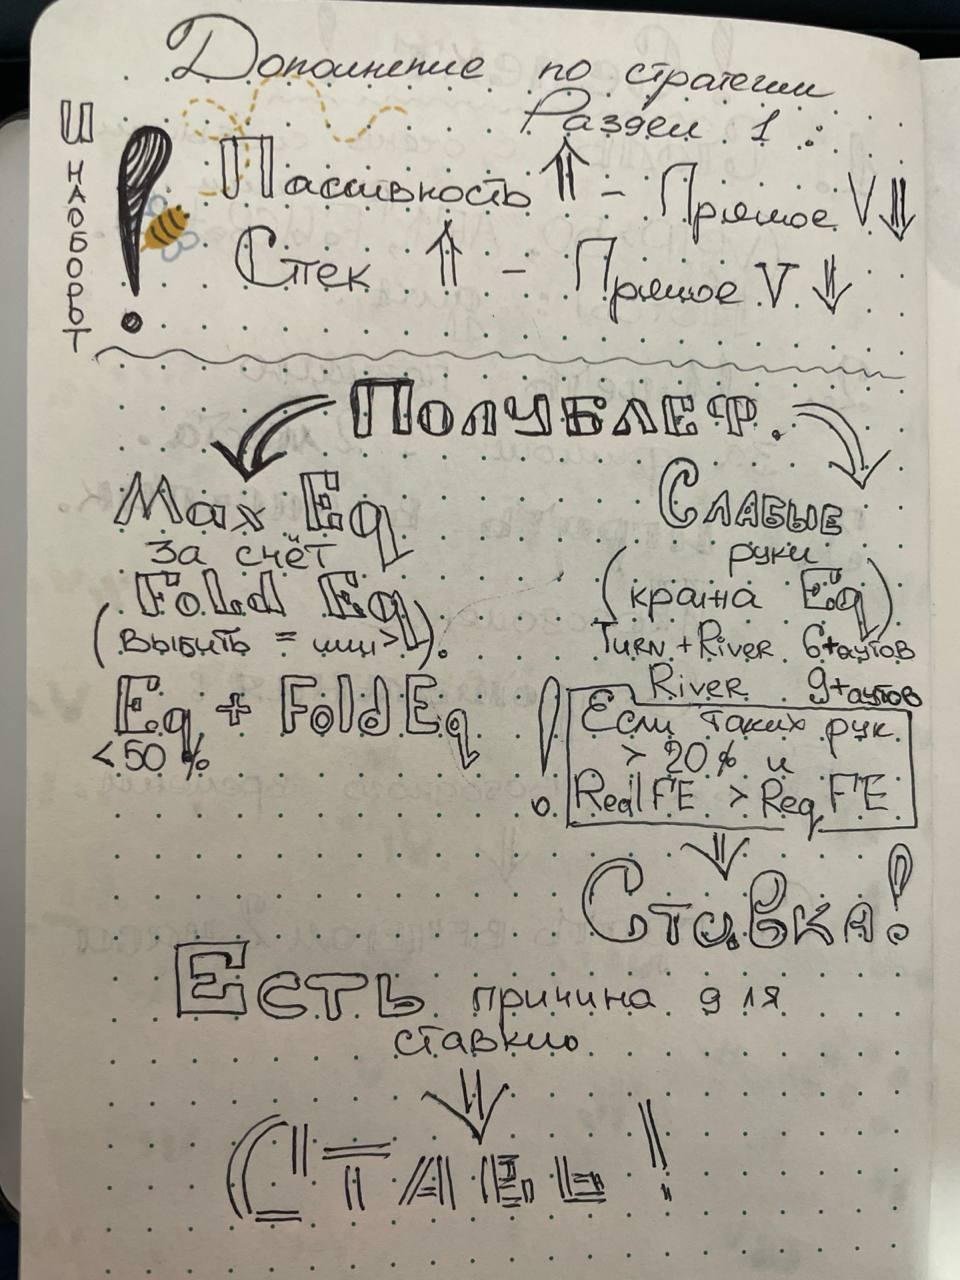 Дополнение по стратегии
Раздел 1 :
И НАОБОРОТ
! Пассивность ⇑ - Прямое V ⇓
Стек ⇑ - Прямое V ⇓
Полублеф.
Max Eq
За счёт
Fold Eq
(Выбить = >).
Eq + Fold Eq
< 50 %
Слабые
руки
(крайна Eq)
Turn + River 6+аутов
River 9+аутов
! Если таких рук
> 20% и
Real FE > Req FE
Ставка!
Есть причина для
ставки
СТАВЬ!